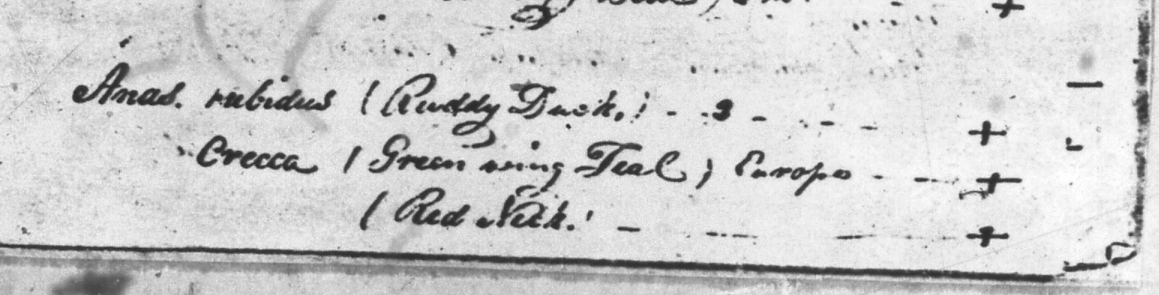 Anas. rubidus (Ruddy Duck.) - - 3 - - - - +
Crecca (Green wing Teal) Europe - - - +
(Red Neck.) - - - - - +